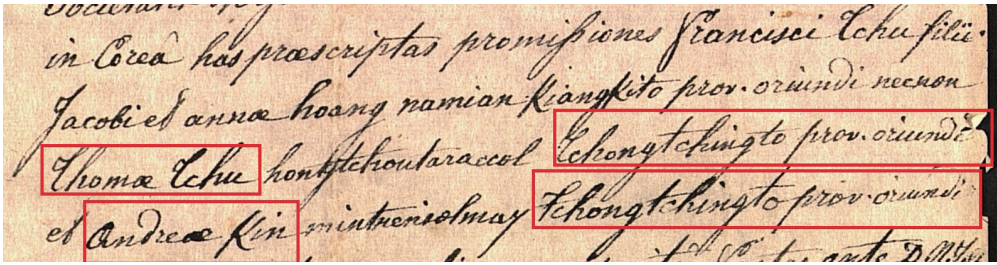 in Coreâ has præscriptas promissiones Francisci Tchu filii
Jacobi et annæ hoang namian Kiangkito prov. oriundi necnon
Thomæ Tchu hongtchoutaraccol Tchongtchingto prov. oriundi
et Andreæ Kin Tchongtchingto prov. oriundi